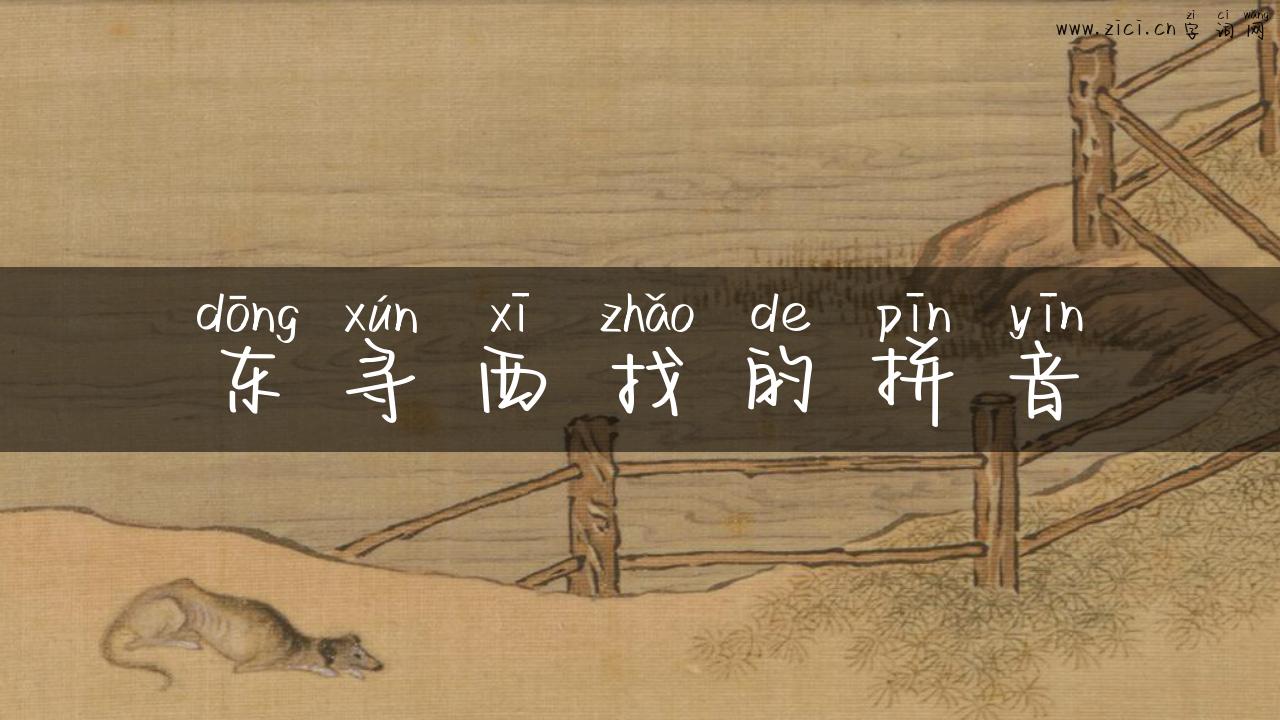 zì cí wǎng
www.zici.cn 字词网
dōng xún xī zhǎo de pīn yīn
东寻西找的拼音